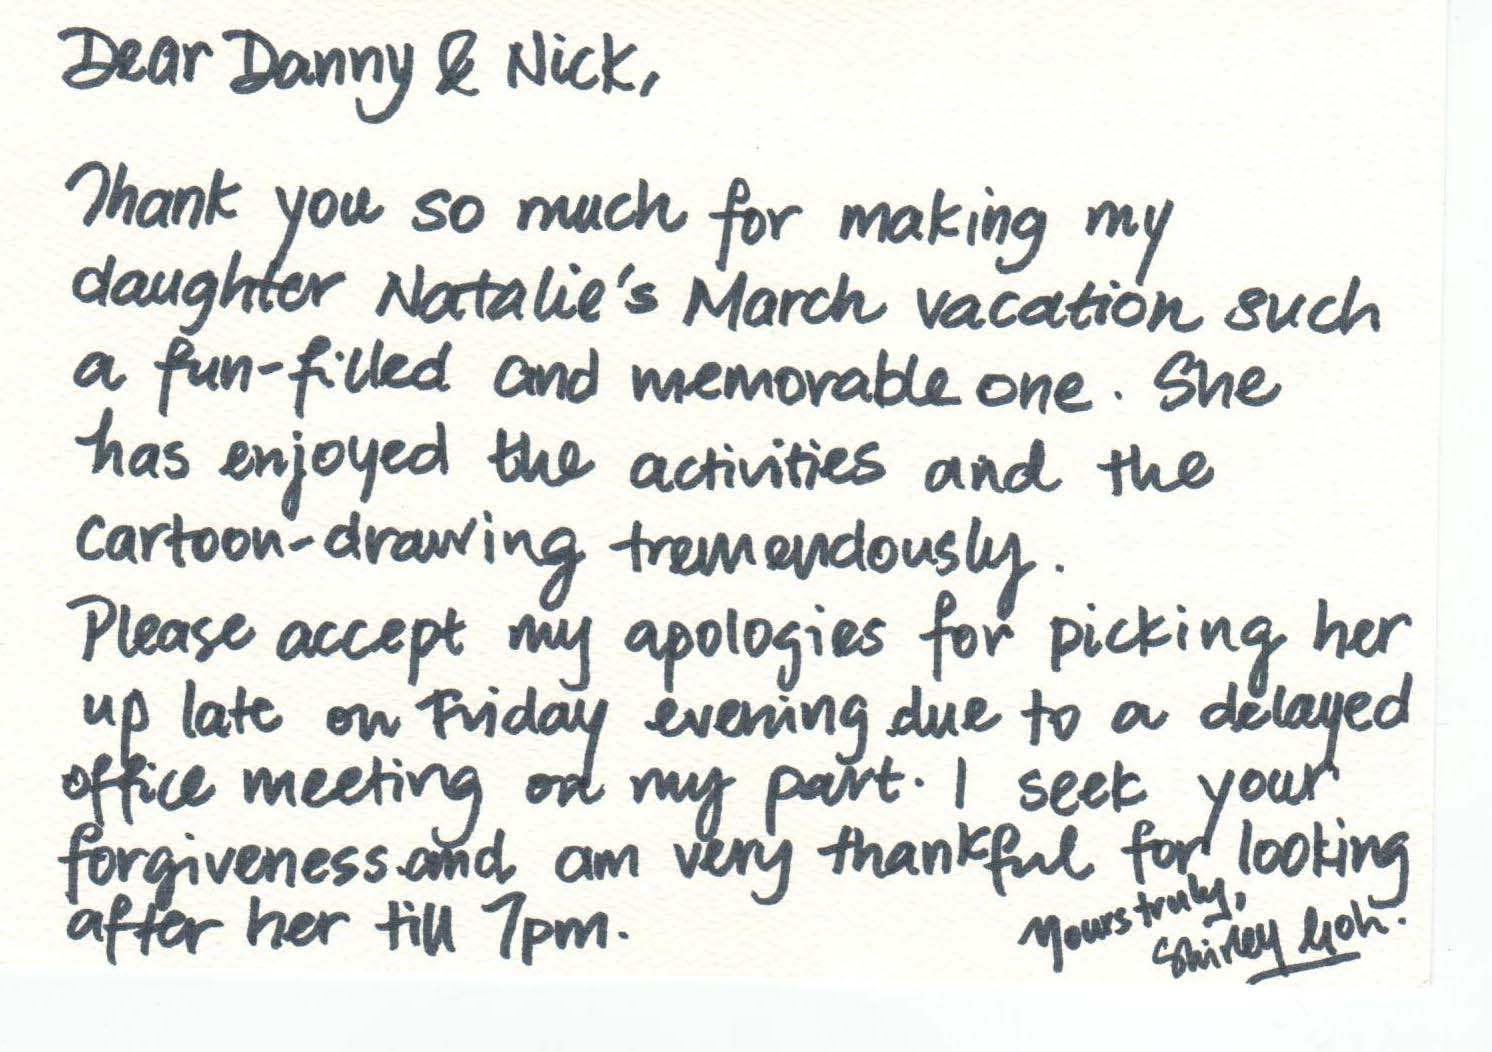 Dear Danny & Nick,
Thank you so much for making my
daughter Natalie's March vacation such
a fun-filled and memorable one. She
has enjoyed the activities and the
cartoon-drawing tremendously.
Please accept my apologies for picking her
up late on Friday evening due to a delayed
office meeting on my part. I seek your
forgiveness and am very thankful for looking
after her till 7pm.
Yours truly,
Shirley Goh.